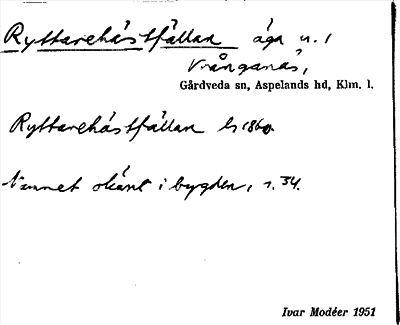 Ryttarehästfällan äga n. 1
Vrånganäs,
Gårdveda sn, Aspelands hd, Klm. l.
Ryttarehästfällan ls 1860.
Namnet okänt i bygden, s. 34.
Ivar Modéer 1951